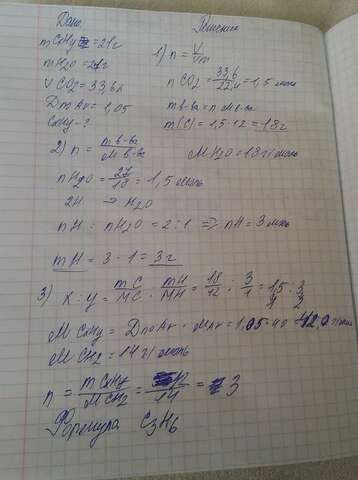 Дано
Решение
m CxHy = 21г
mH2O = 27г
V CO2 = 33,6л
D по Ar = 1,05
CxHy - ?
1) n = V/Vm
n CO2 = 33,6/22,4 = 1,5 моль
m в-ва = n M в-ва
m(C) = 1,5·12 = 18г
2) n = m в-ва / M в-ва
M H2O = 18 г/моль
nH2O = 27/18 = 1,5 моль
2H → H2O
nH : nH2O = 2:1 => nH = 3 моль
mH = 3·1 = 3г
3) x : y = mC/MC : mH/MH = 18/12 : 3/1 = 1,5 : 3
1 2
M CxHy = D по Ar · M Ar = 1,05·40 = 42,0 г/моль
M CH2 = 14 г/моль
n = m CxHy / M CH2 = /14 = 3
Формула C3H6